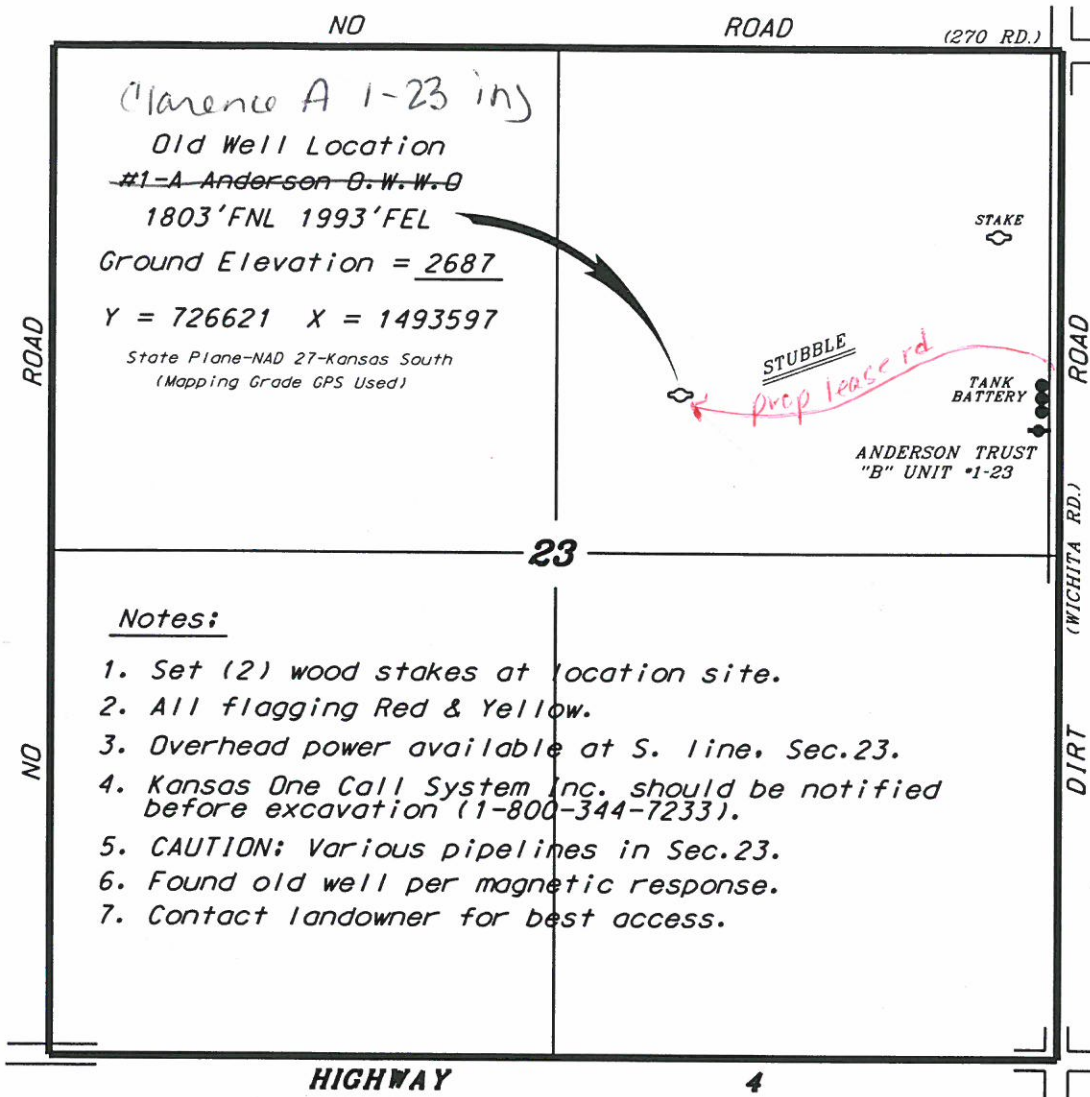 NO ROAD (270 RD.)
Clarence A 1-23 inj
Old Well Location
#1-A Anderson O.W.W.O
1803'FNL 1993'FEL
Ground Elevation = 2687
Y = 726621 X = 1493597
State Plane-NAD 27-Kansas South
(Mapping Grade GPS Used)
STAKE
STUBBLE
prop lease rd
TANK
BATTERY
ANDERSON TRUST
"B" UNIT #1-23
23
Notes:
1. Set (2) wood stakes at location site.
2. All flagging Red & Yellow.
3. Overhead power available at S. line, Sec.23.
4. Kansas One Call System Inc. should be notified
before excavation (1-800-344-7233).
5. CAUTION: Various pipelines in Sec.23.
6. Found old well per magnetic response.
7. Contact landowner for best access.
NO ROAD
DIRT (WICHITA RD.) ROAD
HIGHWAY 4